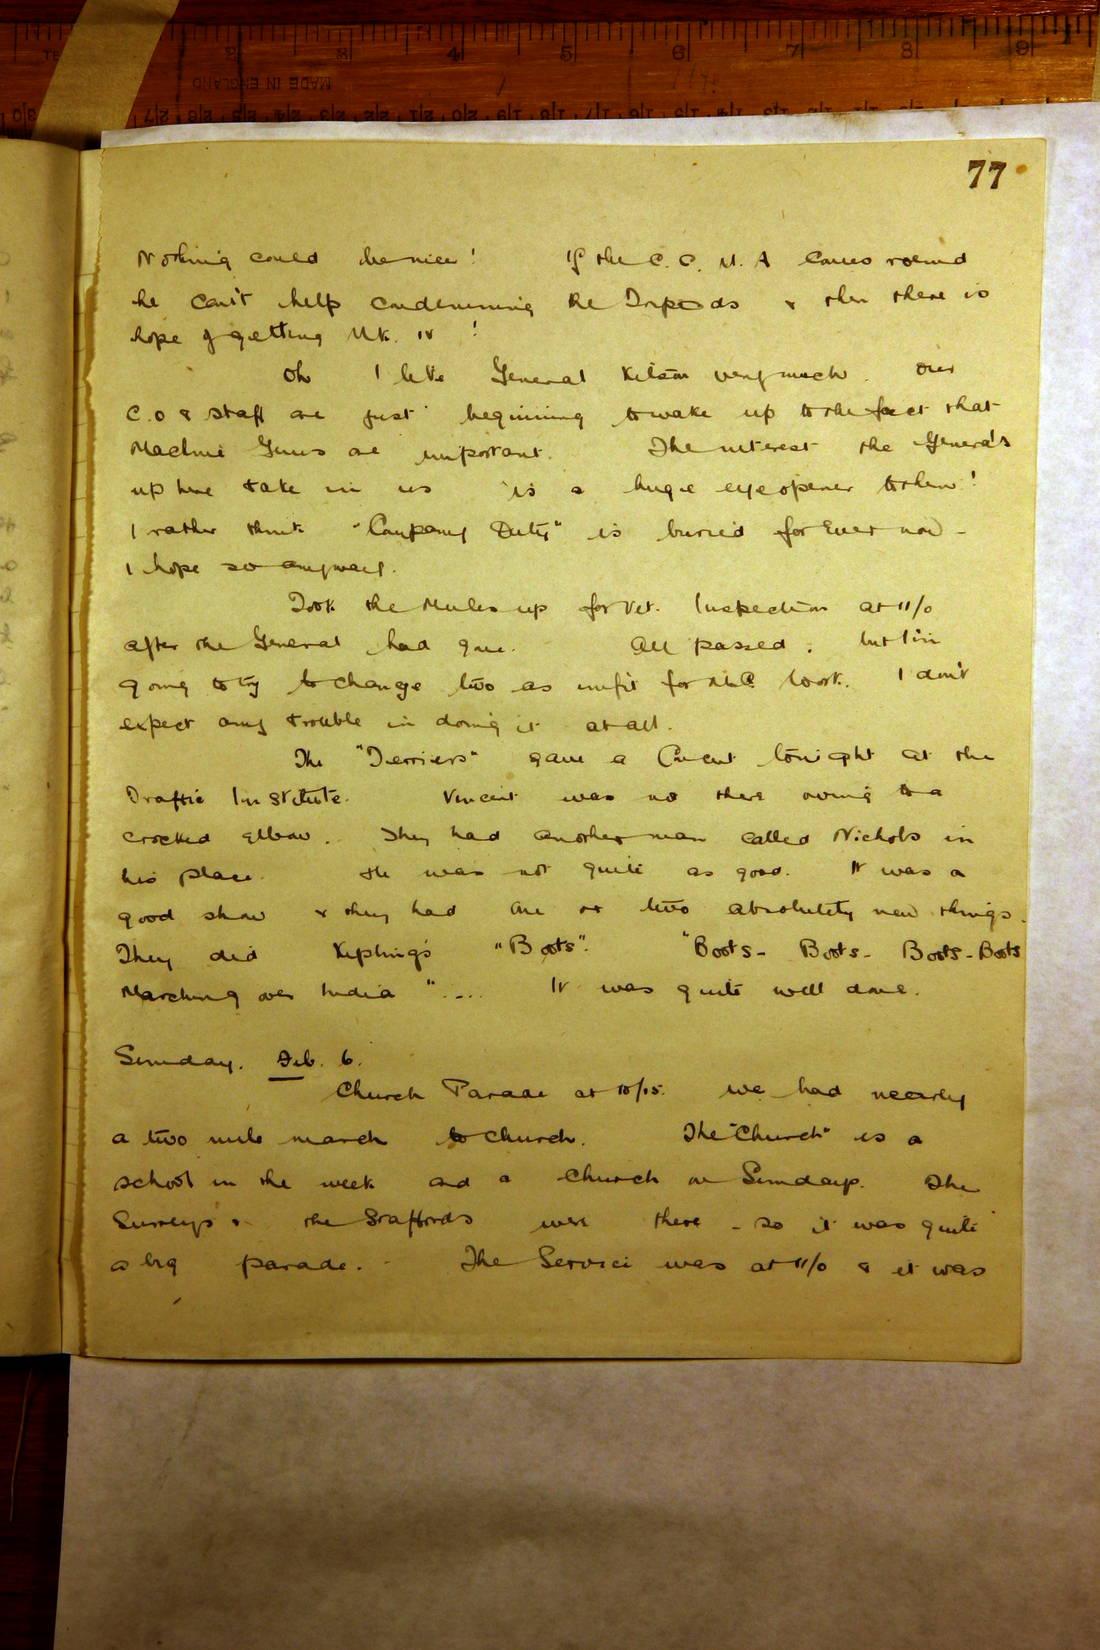 77
Nothing could be nicer! If the C.C. M.A comes round
he can't help condemning the Tripods & then there is
hope of getting Mk. IV !
Oh I like General very much. Our
C.O & Staff are just beginning to wake up to the fact that
Machine Guns are important. The interest the Generals
up here take in us is a huge eye opener to them!
I rather think "Company Duty" is buried for ever now -
I hope so anyway.
Took the Mules up for Vet. Inspection at 11/0
after the General had gone. All passed; but I'm
going to try to change two as unfit for M.G. work. I don't
expect any trouble in doing it at all.
The "Terriers" gave a Concert tonight at the
Traffic Institute. Vincent was no there owing to a
crocked elbow. They had another man called Nichols in
his place. He was not quite as good. It was a
good show & they had one or two absolutely new things.
They did Kipling's "Boots". "Boots - Boots - Boots - Boots
Marching over India".... It was quite well done.
Sunday. Feb. 6.
Church Parade at 10/15. We had nearly
a two mile march to church. The "Church" is a
school in the week and a church on Sundays. The
Surreys & the Staffords were there - so it was quite
a big parade. The Service was at 11/0 & it was
MADE IN ENGLAND
2 3 4 5 6 7 8 9